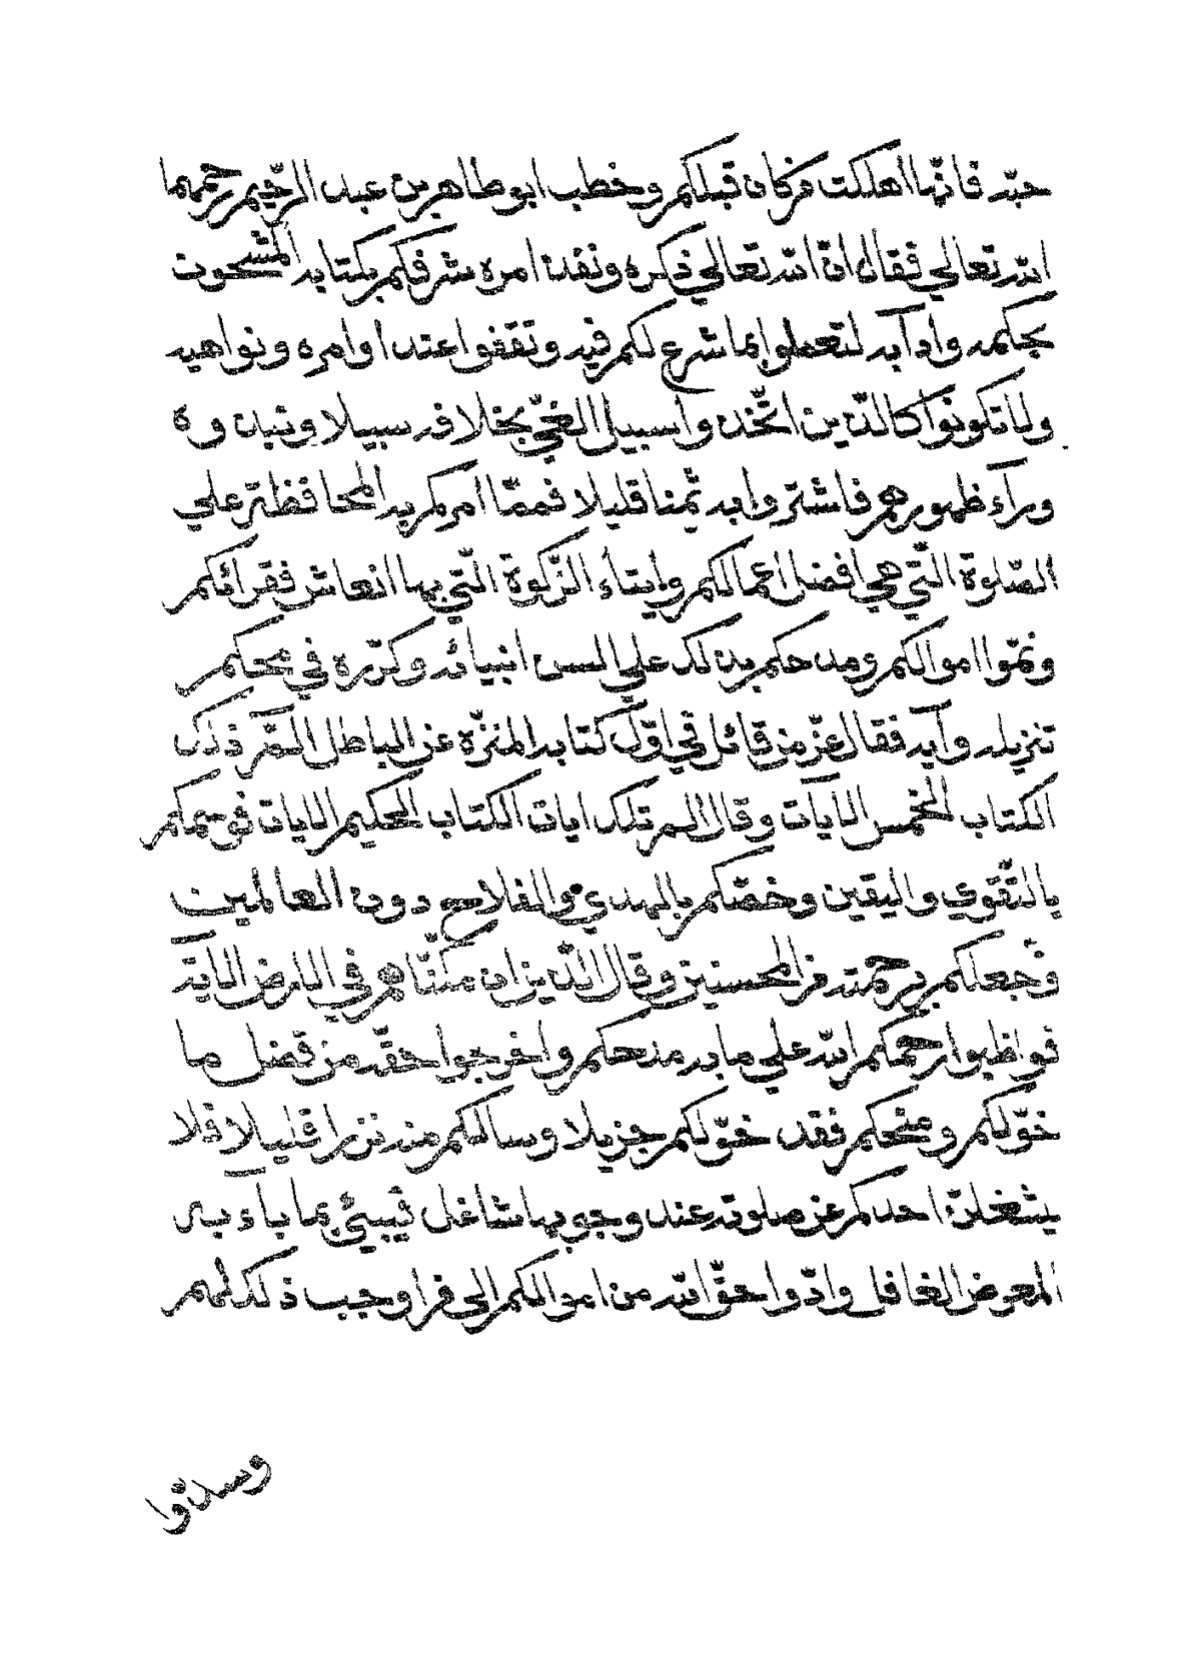 حبّه فانّها اهلكت من كان قبلكم وخطب ابو طاهر بن عبد الرّحيم رحمهما
الله تعالي فقال ان الله تعالي ذكره ونفذ امره شرفكم بكتابه المشحون
بحكمه وادآبه لتعملوا بما شرع لكم فيه وتقفوا عند اوامره ونواهيه
ولا تكونوا كالذين اتّخذوا سبيل الغيّ بخلافه سبيلا ونبذوه
ورآء ظهورهم فاشتروا به ثمنا قليلا فممّا امركم به المحافظة علي
الصّلوة الّتي هي افضل اعمالكم وايتاء الزّكوة الّتي بها انعاش فقرائكم
ونموّا اموالكم ومدحكم بذلك علي السن انبيائه وكرّره في محكم
تنزيله وآيه فقال عزّ من قائل في اوّل كتابه المنزّه عن الباطل الٓمّ ذلك
الكتاب الخمس الآيات وقال الم تلك ايات الكتاب الحكيم الايات فوسمكم
بالتّقوي واليقين وخصّكم بالهدي والفلاح دون العالمين
وجعلكم برحمته من المحسنين وقال الّذين ان مكنّاهم في الارض الآية
فواظبوا رحمكم الله علي ما به مدحكم واخرجوا حقّه من فضل ما
خوّلكم ومنحكم فقد خوّلكم جزيلا وسالكم منه نزرا قليلا فلا
يشغلنّ احدكم عن صلوته عند وجوبها شاغل فيبئ بما بآء به
المعرض الغافل وادّوا حقّ الله من اموالكم الي من اوجب ذلك لهم
وسدّوا